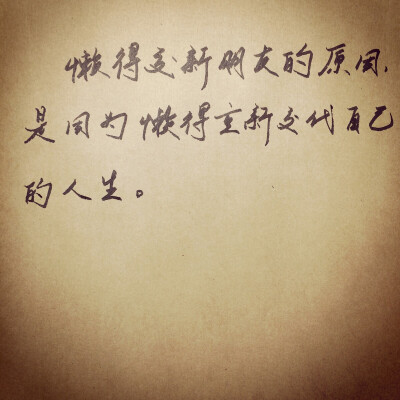 懒得交新朋友的原因,
是因为懒得重新交代自己
的人生。